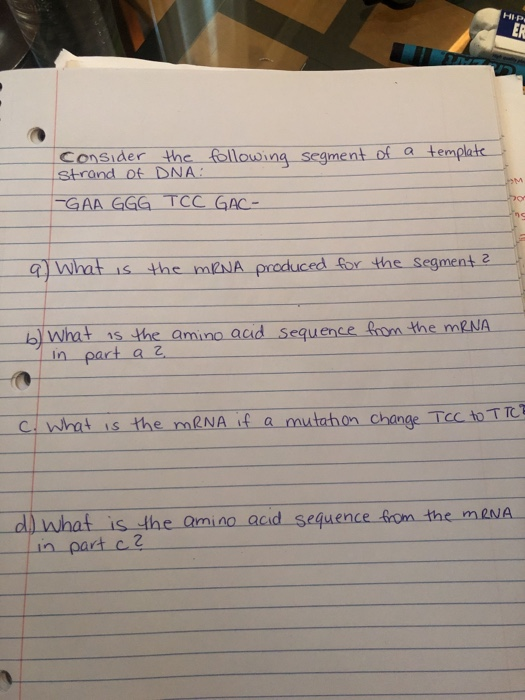 HI-P
ER
Consider the following segment of a template
strand of DNA:
-GAA GGG TCC GAC-
a) What is the mRNA produced for the segment?
b) What is the amino acid sequence from the mRNA
in part a?
c. What is the mRNA if a mutation change TCC to TTC?
d) What is the amino acid sequence from the mRNA
in part c?